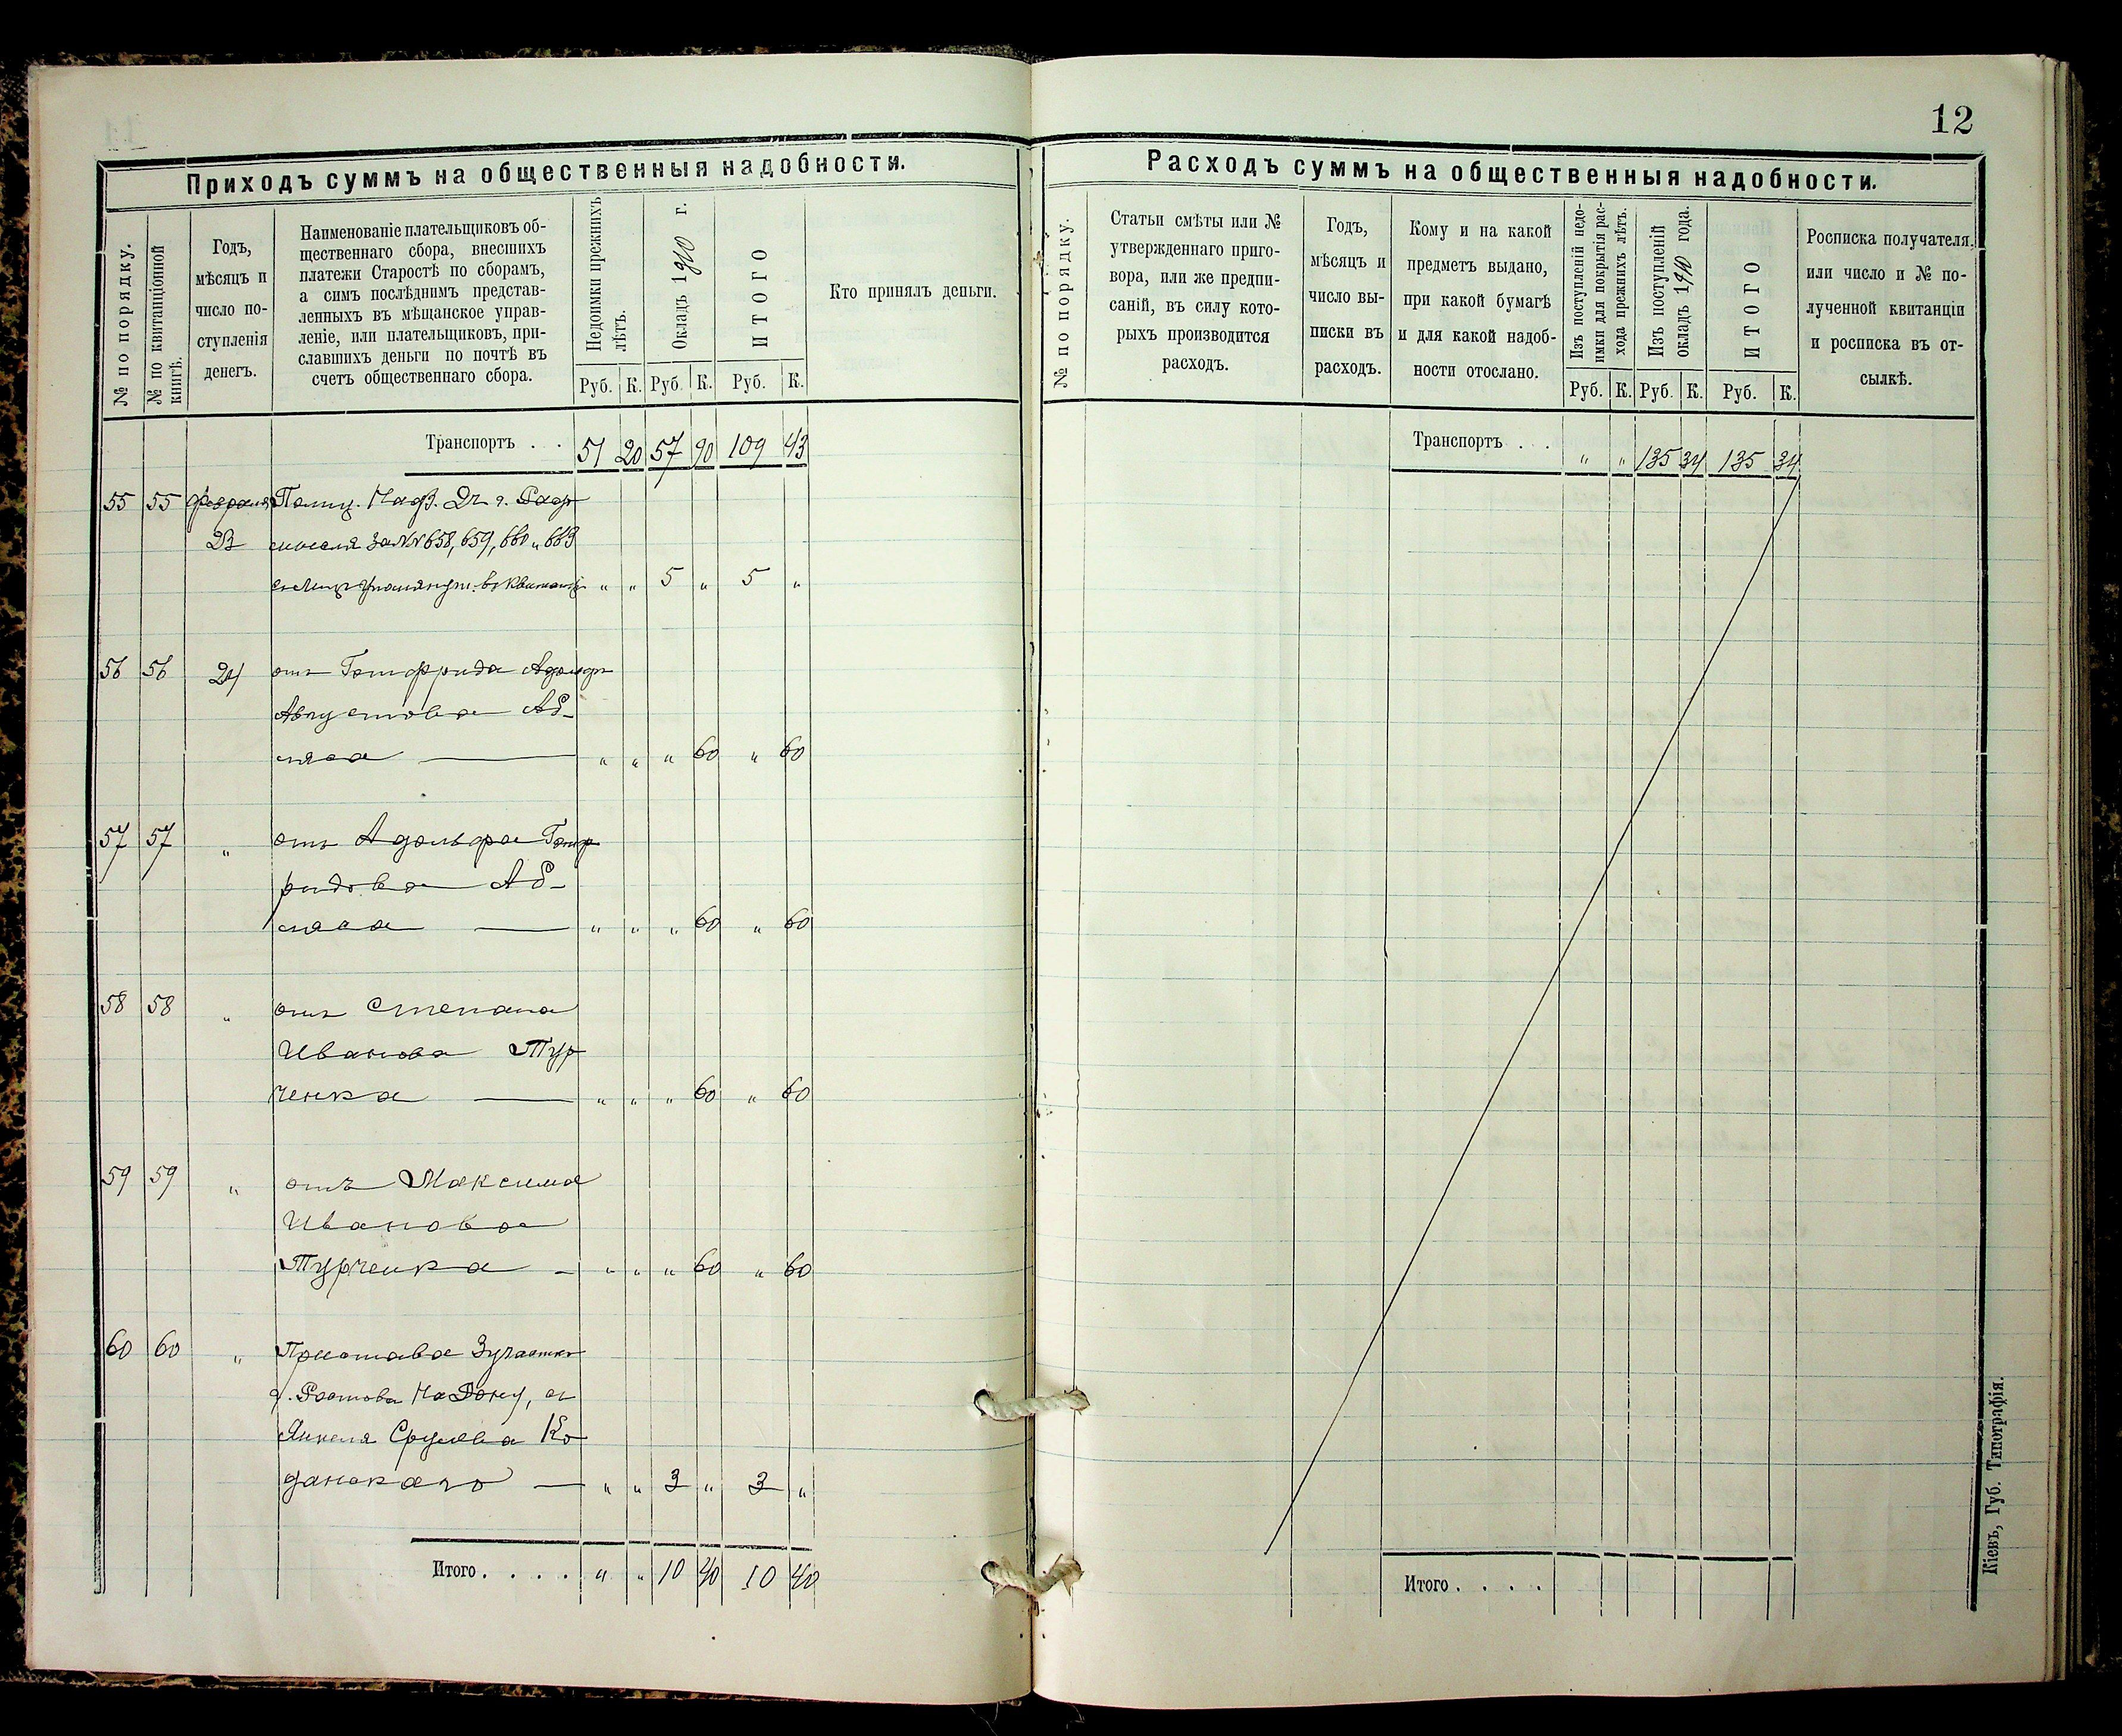 12
Приходъ суммъ на общественныя надобности.
№ по порядку.
№ по квитанціонной книгѣ.
Годъ,
мѣсяцъ и
число по-
ступленія
денегъ.
Наименованіе плательщиковъ об-
щественнаго сбора, внесшихъ
платежи Старостѣ по сборамъ,
а симъ послѣднимъ представ-
ленныхъ въ мѣщанское управ-
леніе, или плательщиковъ, при-
славшихъ деньги по почтѣ въ
счетъ общественнаго сбора.
Недоимки прежнихъ
лѣтъ.
Окладъ 1910 г.
ИТОГО
Кто принялъ деньги.
Руб. К. Руб. К. Руб. К.
Транспортъ . . 51 20 57 90 109 43
55 55 февраля Полиц. Надз. 2ч г.
23 за №№ 658, 659, 660 и 663
упомянут. въ квитанц. " " 5 " 5 "
56 56 24 отъ Готфрида Адольфъ
Августова Аб-
ляса — " " " 60 " 60
57 57 " отъ Адольфа Готф
ридова Аб-
ляса — " " " 60 " 60
58 58 " отъ Степана
Иванова Тур
ченка — " " " 60 " 60
59 59 " отъ Максима
Иванова
Турченка — " " " 60 " 60
60 60 " Пристава 3 участка
г. Ростова На Дону, съ
Янкеля Срулева Ко
данскаго — " " 3 " 3 "
Итого . . . . " " 10 40 10 40
Расходъ суммъ на общественныя надобности.
№ по порядку.
Статьи смѣты или №
утвержденнаго приго-
вора, или же предпи-
саній, въ силу кото-
рыхъ производится
расходъ.
Годъ,
мѣсяцъ и
число вы-
писки въ
расходъ.
Кому и на какой
предметъ выдано,
при какой бумагѣ
и для какой надоб-
ности отослано.
Изъ поступленій недо-
имки для покрытія рас-
хода прежнихъ лѣтъ.
Изъ поступленій
окладъ 1910 года.
ИТОГО
Росписка получателя,
или число и № по-
лученной квитанціи
и росписка въ от-
сылкѣ.
Руб. К. Руб. К. Руб. К.
Транспортъ . . " " 135 34 135 34
Итого . . . .
Кіевъ, Губ. Типографія.